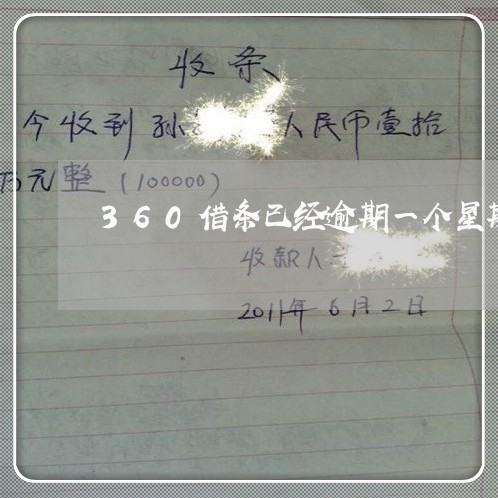 收条
今收到孙人民币壹拾
万元整(100000)
360借条已经逾期一个星期
收款人
2011年6月2日